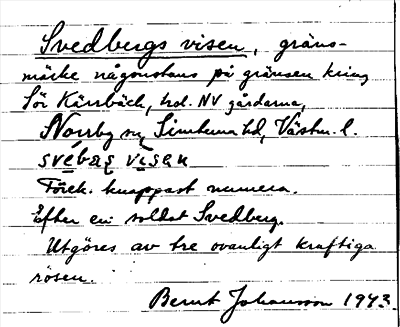 Svedbergs visen, gräns-
märke någonstans på gränsen kring
Sör Kärrbäck, trol. NV gårdarna,
Norrby sn, Simtuna hd, Västm. l.
Förek. knappast numera.
Efter en soldat Svedberg.
Utgöres av tre ovanligt kraftiga
rösen.
Bernt Johansson 1943.